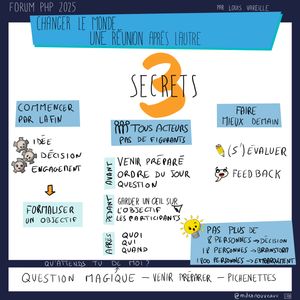 FORUM PHP 2025
PAR LOUIS VAREILLE
CHANGER LE MONDE
UNE RÉUNION APRÈS L'AUTRE
3
SECRETS
COMMENCER
PAR LA FIN
IDÉE
DÉCISION
ENGAGEMENT
FORMALISER
UN OBJECTIF
TOUS ACTEURS
PAS DE FIGURANTS
AVANT
VENIR PRÉPARÉ
ORDRE DU JOUR
QUESTION
PENDANT
GARDER UN OEIL SUR
L'OBJECTIF
LES PARTICIPANTS
APRÈS
QUOI
QUI
QUAND
FAIRE
MIEUX DEMAIN
(S')ÉVALUER
FEEDBACK
PAS PLUS DE
8 PERSONNES → DÉCISION
18 PERSONNES → BRAINSTORM
1800 PERSONNES → ENTERREMENT
QU'ATTENDS TU DE MOI?
QUESTION MAGIQUE – VENIR PRÉPARER – PICHENETTES